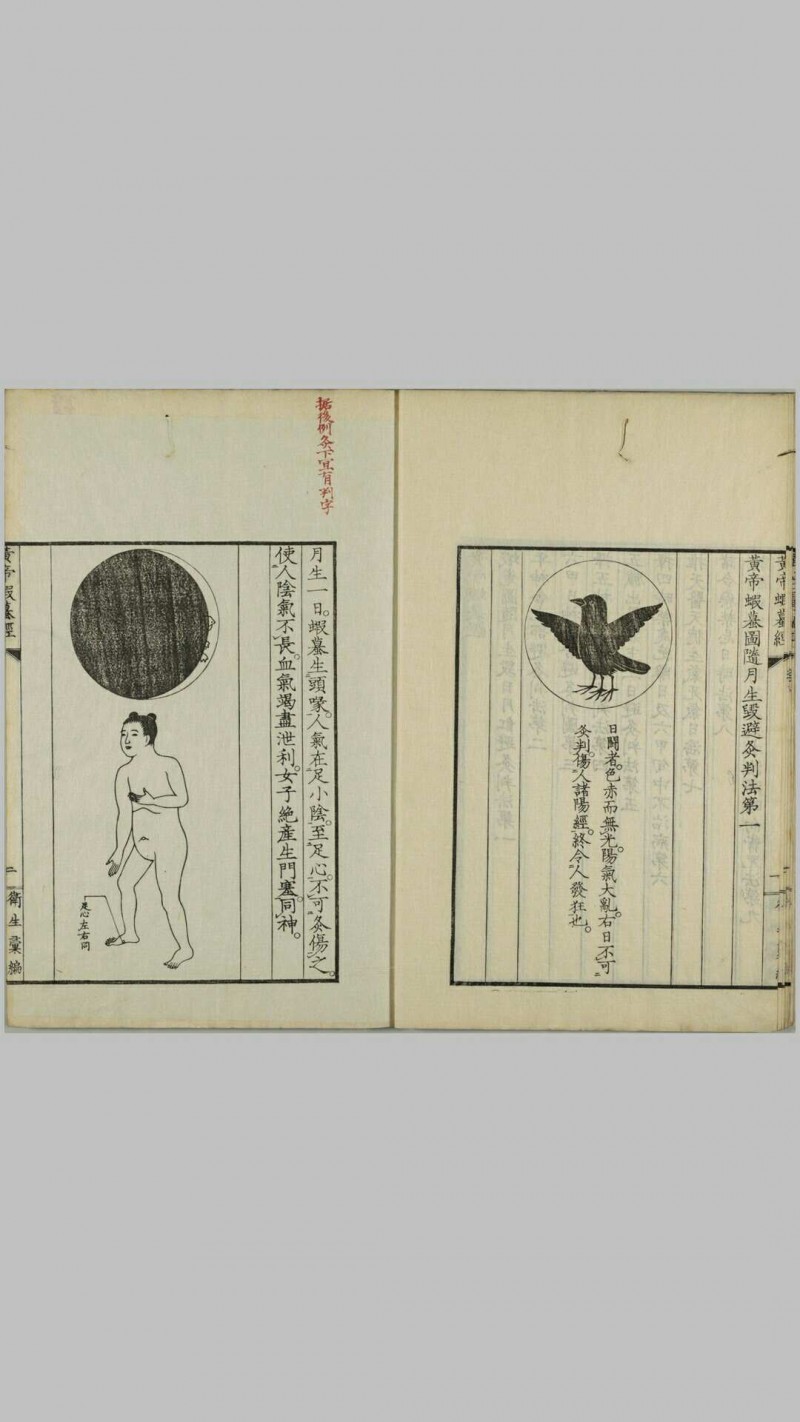 黃帝蝦蟇經
黃帝蝦蟇圖隨月生毀避灸判法第一
日鬪者。色赤而無光。陽氣大亂。右日不可
灸判。傷人諸陽經。終令人發狂也。
据後例灸下宜有判字
月生一日。蝦蟇生頭喙。人氣在足小陰。至足心。不可灸傷之。
使人陰氣不長。血氣竭盡泄利。女子絶產生門塞。同神。
足心左右同
黃帝蝦蟇經
二
衛生彙編